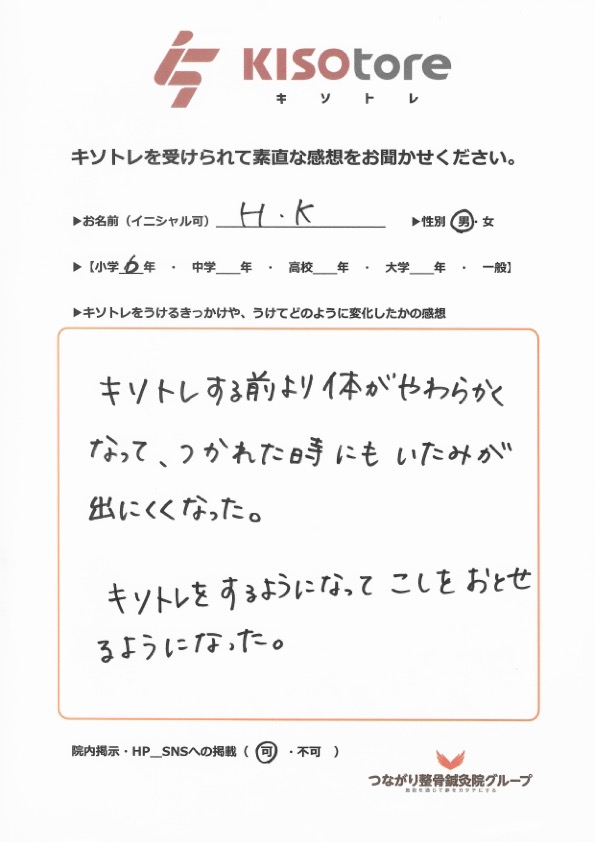 KISOtore
キソトレ
キソトレを受けられて素直な感想をお聞かせください。
▶お名前（イニシャル可） H.K ▶性別 男・女
▶【小学6年 ・ 中学___年 ・ 高校___年 ・ 大学___年 ・ 一般】
▶キソトレをうけるきっかけや、うけてどのように変化したかの感想
キソトレする前より体がやわらかく
なって、つかれた時にもいたみが
出にくくなった。
キソトレをするようになってこしをおとせ
るようになった。
院内掲示・HP__SNSへの掲載（ 可 ・不可 ）
つながり整骨鍼灸院グループ
施術を通じて夢をカタチにする